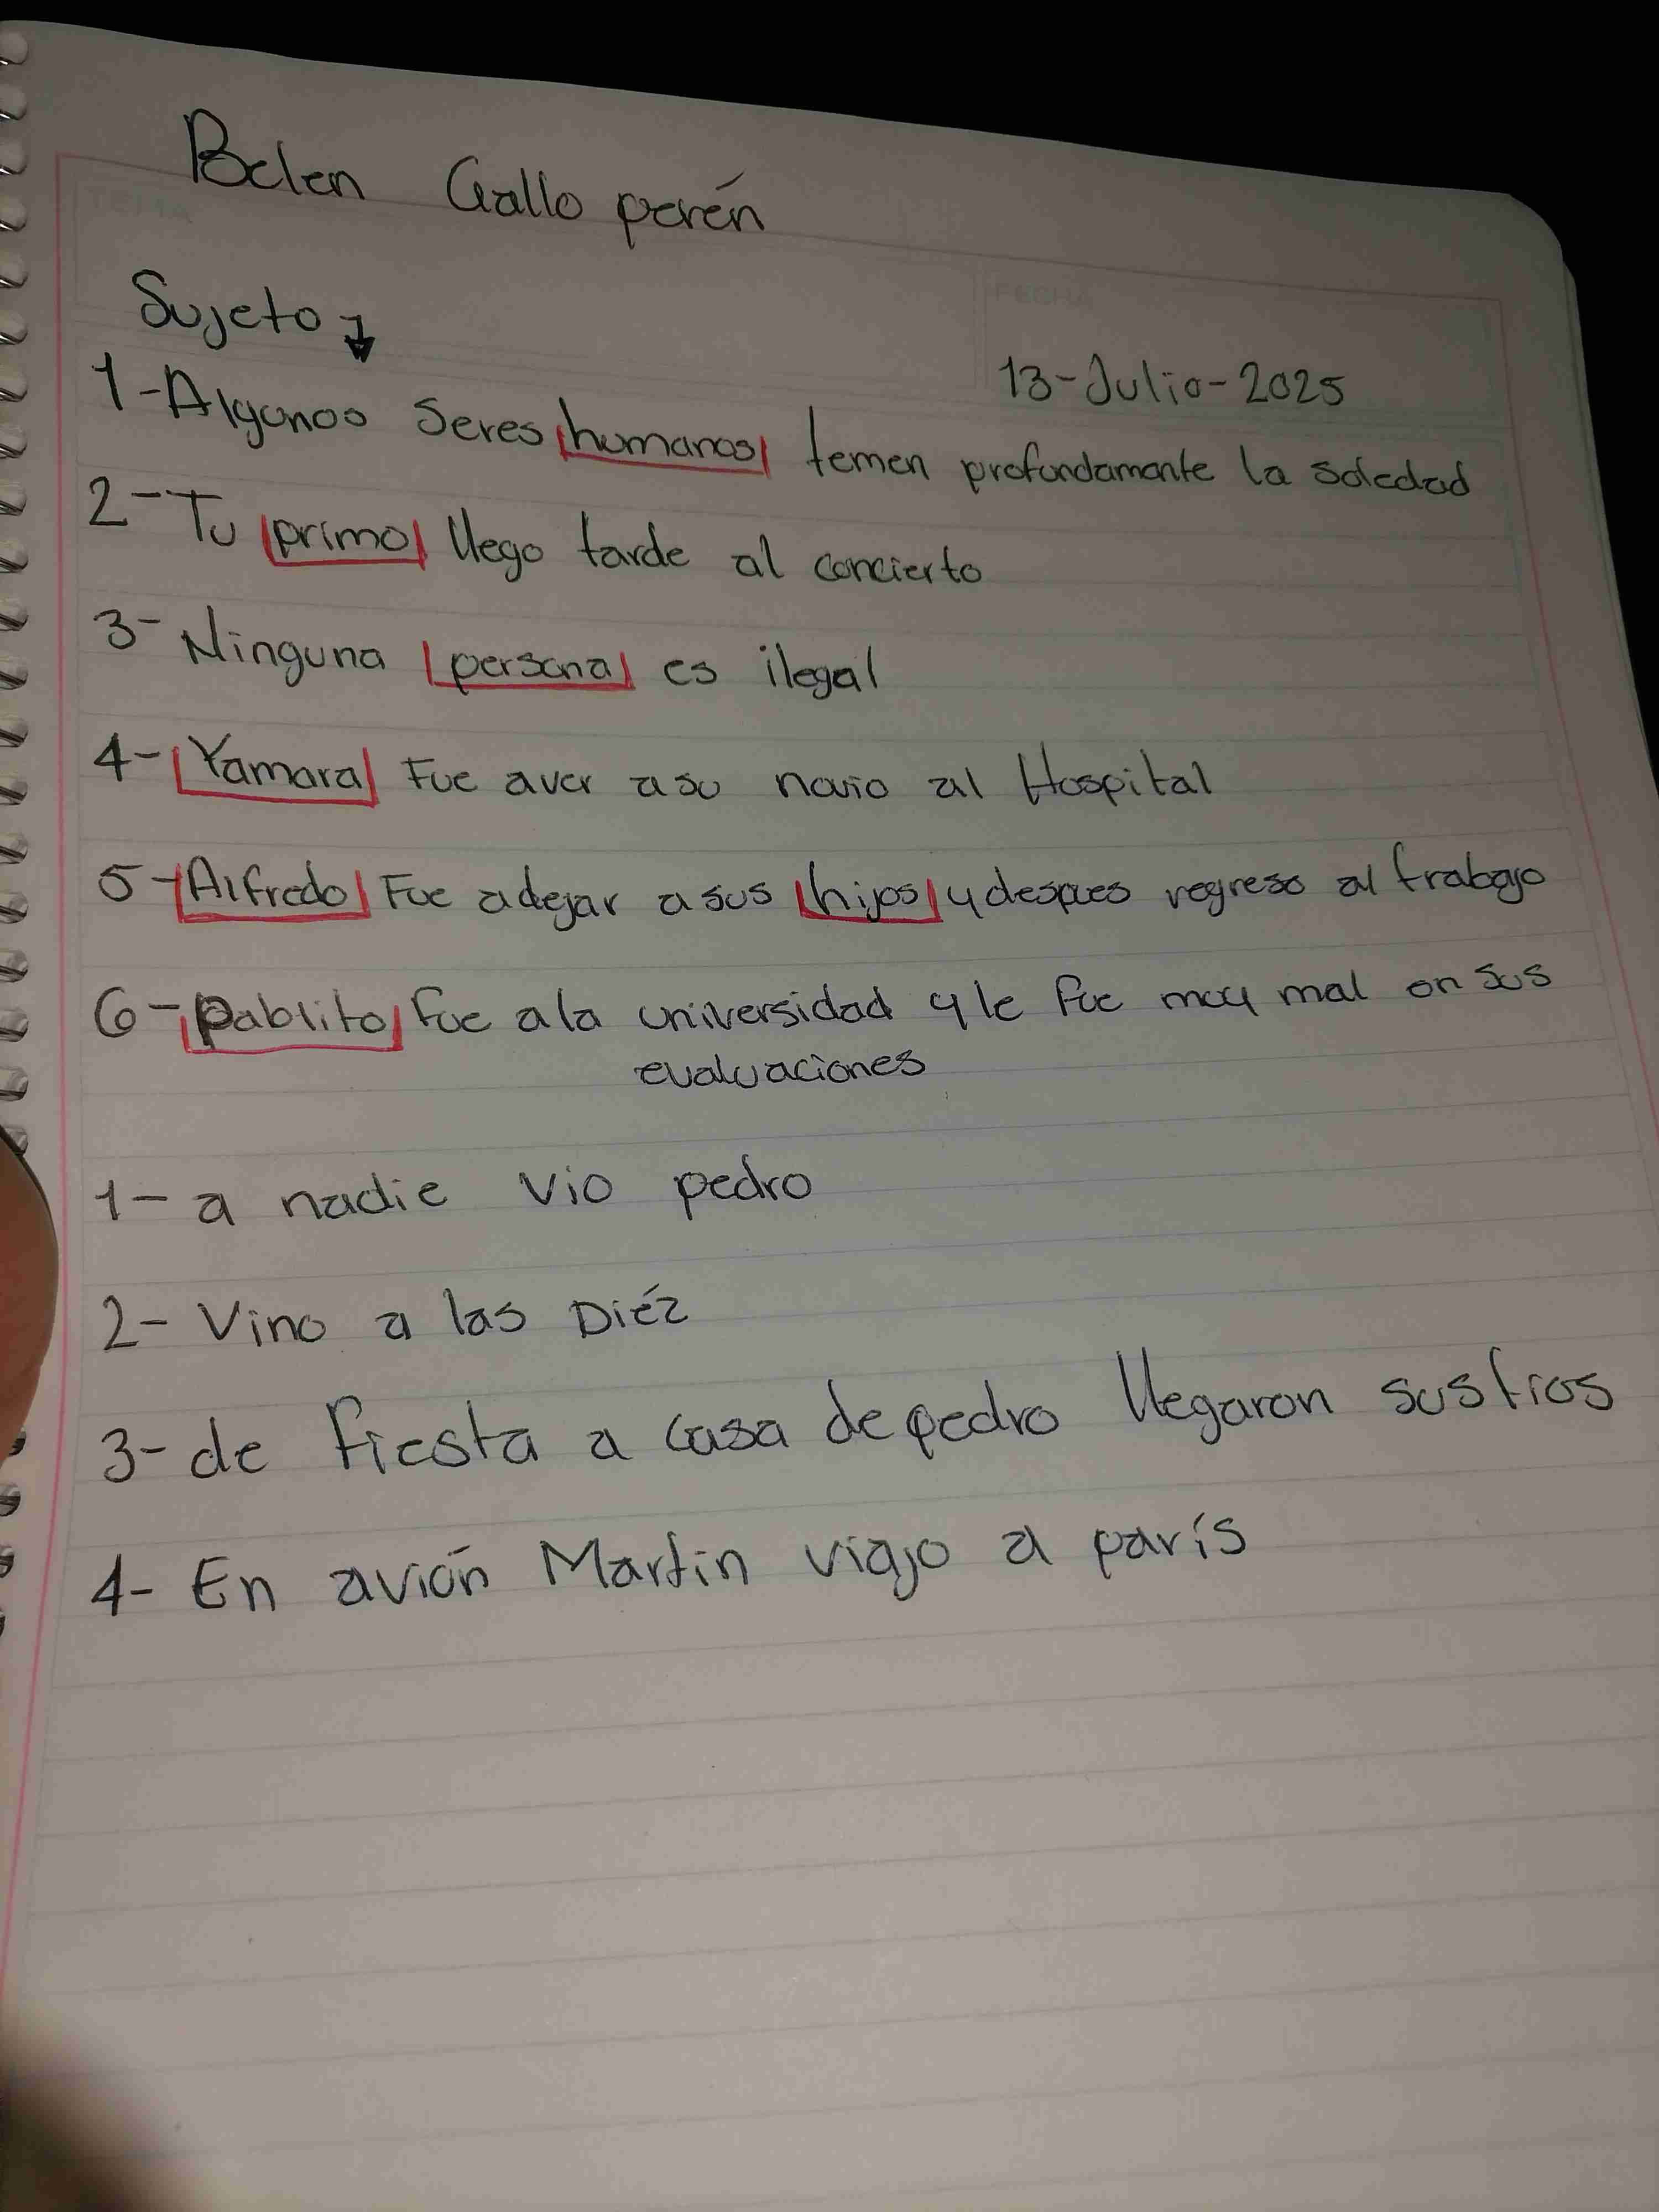 Belen Gallo perén
TEMA
FECHA
Sujeto
13-Julio-2025
1-Algunos Seres humanos temen profundamante la soledad
2-Tu primo llego tarde al concierto
3- Ninguna persona es ilegal
4- Yamara Fue aver a su novio al Hospital
5-Alfredo Fue adejar a sus hijos y despues regreso al trabajo
6-pablito fue a la universidad y le fue muy mal en sus
evaluaciones
1- a nadie vio pedro
2- Vino a las Diéz
3- de fiesta a casa de pedro llegaron sus tios
4- En avión Martin viajo a parís